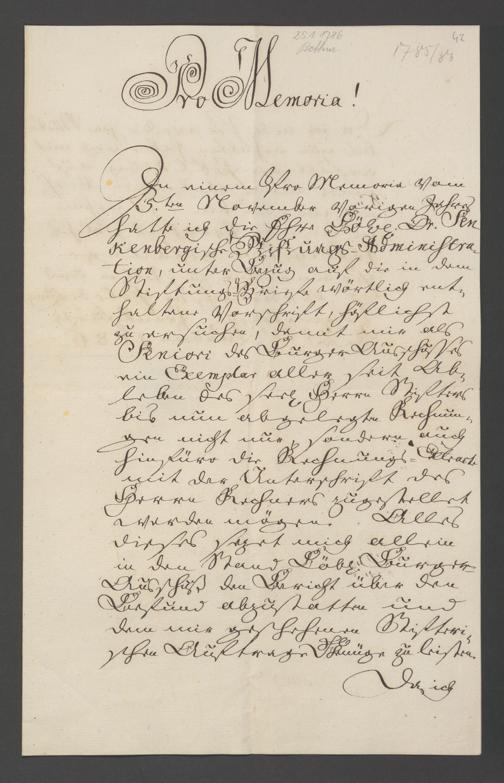 25.1.1786
42
1785/86
Pro Memoria!
In einem Pro Memoria vom
5.ten November vorigen Jahrs
hatte ich die Ehre Löbl. Dr. Sen-
kenbergische Stiftungs-Administra-
tion, unter Bezug auf die in dem
Stiftungs-Briefe wörtlich ent-
haltene Vorschrift, höflichst
zu ersuchen, damit mir als
Seniori des Burger Ausschusses
ein Exemplar aller seit Ab-
leben des seel. Herrn Stifters
bis nun abgelegten Rechnun-
gen nicht nur, sondern auch
hinfüro die Rechnungs-
mit der Unterschrift des
Herrn Rechners zugestellet
werden mögen. Alles
dieses sezet mich allein
in den Stand Löbl. Burger-
Ausschuß den Bericht über den
Befund abzustatten und
dem mir geschehenen Stifteri-
schen Auftrage Genüge zu leisten.
Da ich